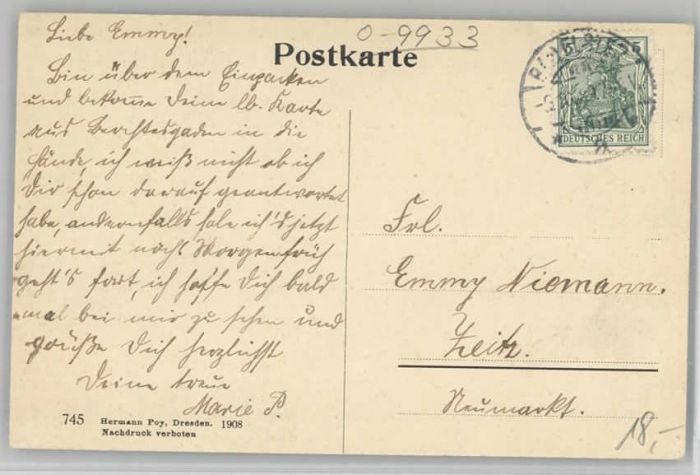 0-9933
Postkarte
Liebe Emmy!
Bin über dem Einpacken
und bekomme Deine lb. Karte
aus Berchtesgaden in die
Hände, ich weiß nicht ob ich
Dir schon darauf geantwortet
habe, andernfalls hole ich's jetzt
hiermit nach. Morgen früh
geht's fort, ich hoffe Dich bald
mal bei mir zu sehen und
grüße Dich herzlichst
Deine treue
Marie P.
745 Hermann Poy, Dresden. 1908
Nachdruck verboten
5
DEUTSCHES REICH
Frl.
Emmy Niemann.
Zeitz.
Neumarkt.
18,-